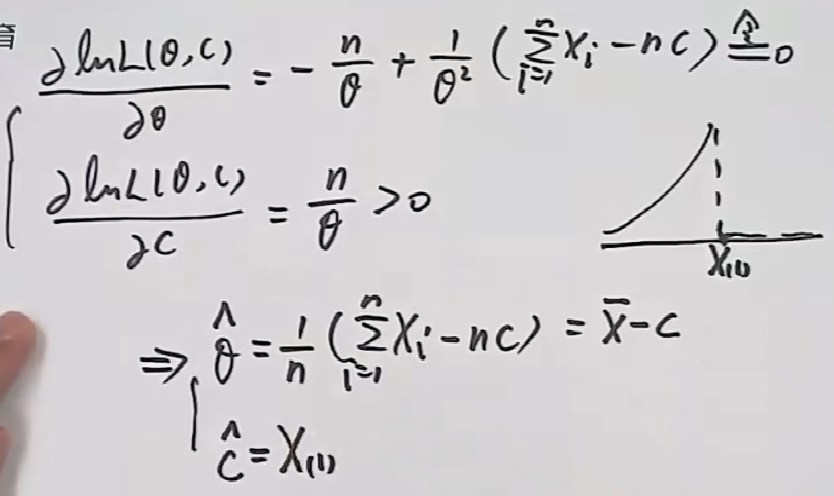 育
∂lnL(θ,c)/∂θ = - n/θ + 1/θ² (∑_{i=1}^{n} Xᵢ - nc) ≙ 0
∂lnL(θ,c)/∂c = n/θ > 0
X₍₁₎
⇒ θ̂ = 1/n (∑_{i=1}^{n} Xᵢ - nc) = X̄ - c
ĉ = X₍₁₎